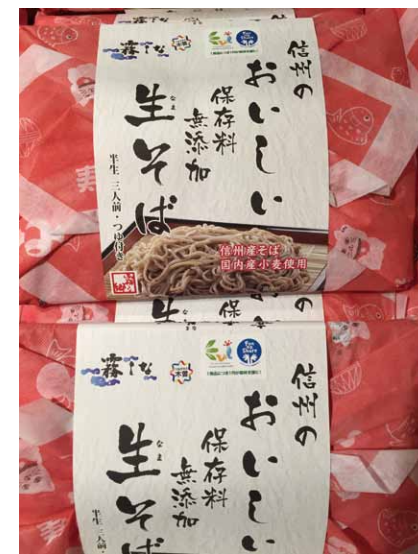 信州の
おいしい
保存料
無添加
生そば
なま
半生 三人前・つゆ付き
霧しな
信州産そば
国内産小麦使用
寿
信州の
おいしい
保存料
無添加
生そば
なま
霧しな
木曽
半生 三人前